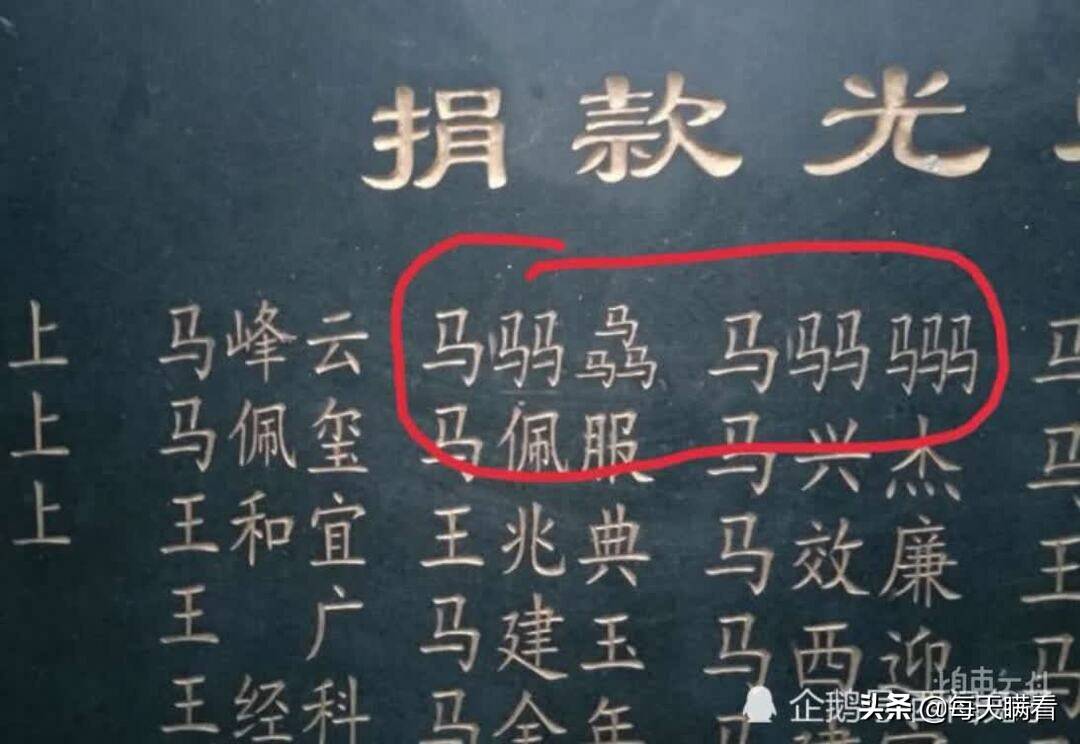 捐款光
上 马峰云 马⿰马马骉 马⿰马马⿲马马马 马
上 马佩玺 马佩服 马兴杰 马
上 王和宜 王兆典 马效廉 王
王广 马建玉 马西迎 马
王经科 马全年 马
企鹅
头条 @每天瞒看